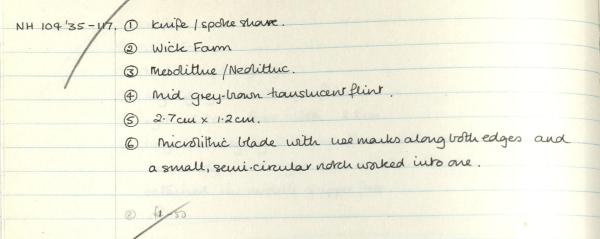 NH 104'35-117. ① Knife / spoke shave.
② Wick Farm
③ Mesolithic / Neolithic.
④ Mid grey-brown translucent flint.
⑤ 2.7cm x 1.2cm.
⑥ Microlithic blade with use marks along both edges and
a small, semi-circular notch worked into one.
⑧ £1-50